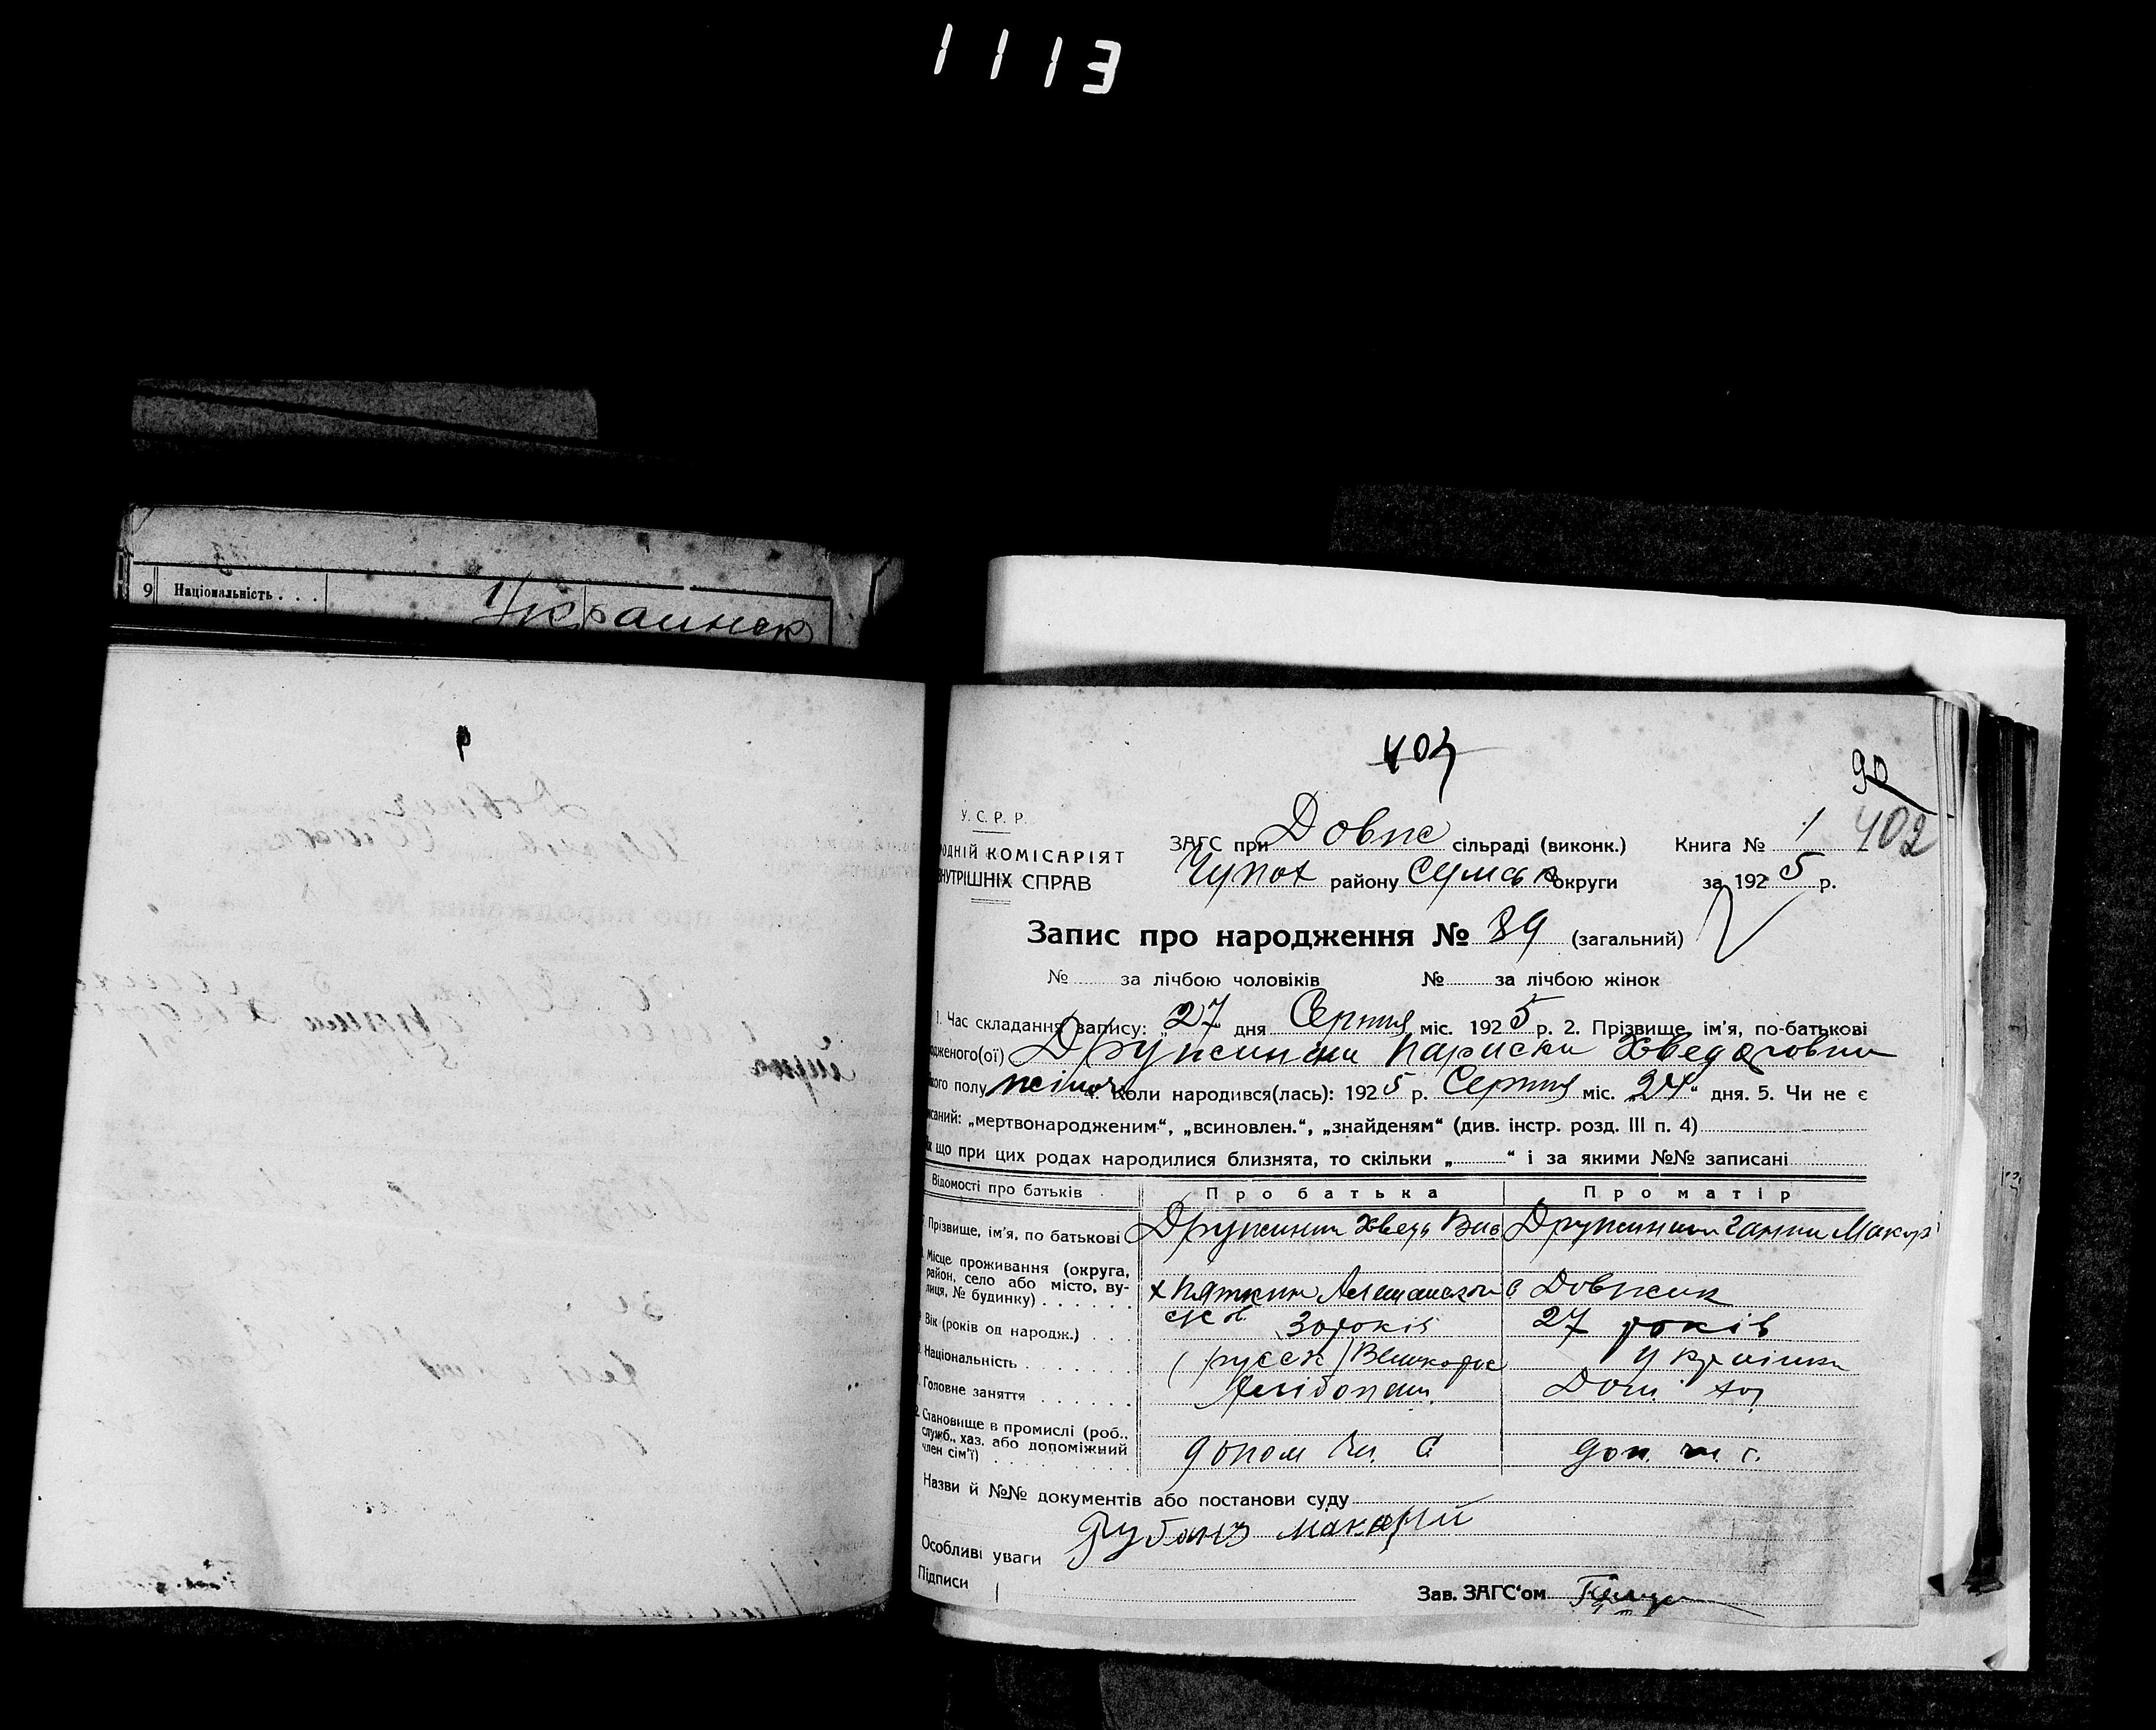 1113
9 Національність . . . Украинск
403
90
402
У. С. Р. Р.
ЗАГС при Довж сільраді (виконк.) Книга № 1
ОДНІЙ КОМІСАРІЯТ
Чупах району Сумськ округи за 1925 р.
НУТРІШНІХ СПРАВ
Запис про народження № 89 (загальний)
№ за лічбою чоловіків № за лічбою жінок
1. Час складання запису: „27 дня Серпня міс. 1925 р. 2. Прізвище, ім'я, по-батькові
одженого(ої) Дружинини Параски Хведоровни
кого полу жіноч 4. Коли народився(лась): 1925 р. Серпня міс. „24“ дня. 5. Чи не є
исаний: „мертвонародженим“, „всиновлен.“, „знайденям“ (див. інстр. розд. III п. 4)
к що при цих родах народилися близнята, то скільки „ “ і за якими №№ записані
Відомості про батьків Про батька Про матір
Прізвище, ім'я, по батькові Дружинин Хведь Дружинини Ганни Макар
Місце проживання (округа,
район, село або місто, ву-
лиця, № будинку) . . . . . . х Пяткин с Довжик
Вік (років од народж.) . . . 30 років 27 років
Національність . . . . . . . (русск) Великорос Українка
Головне заняття . . . . . . Хлібопаш. Дом. хаз
Становище в промислі (роб.,
служб., хаз. або допоміжний
член сім'ї) . . . . . . . . . допом чл. с доп. чл. с.
Назви й №№ документів або постанови суду
Особливі уваги Рубанъ Макарій
Підписи Зав. ЗАГС'ом